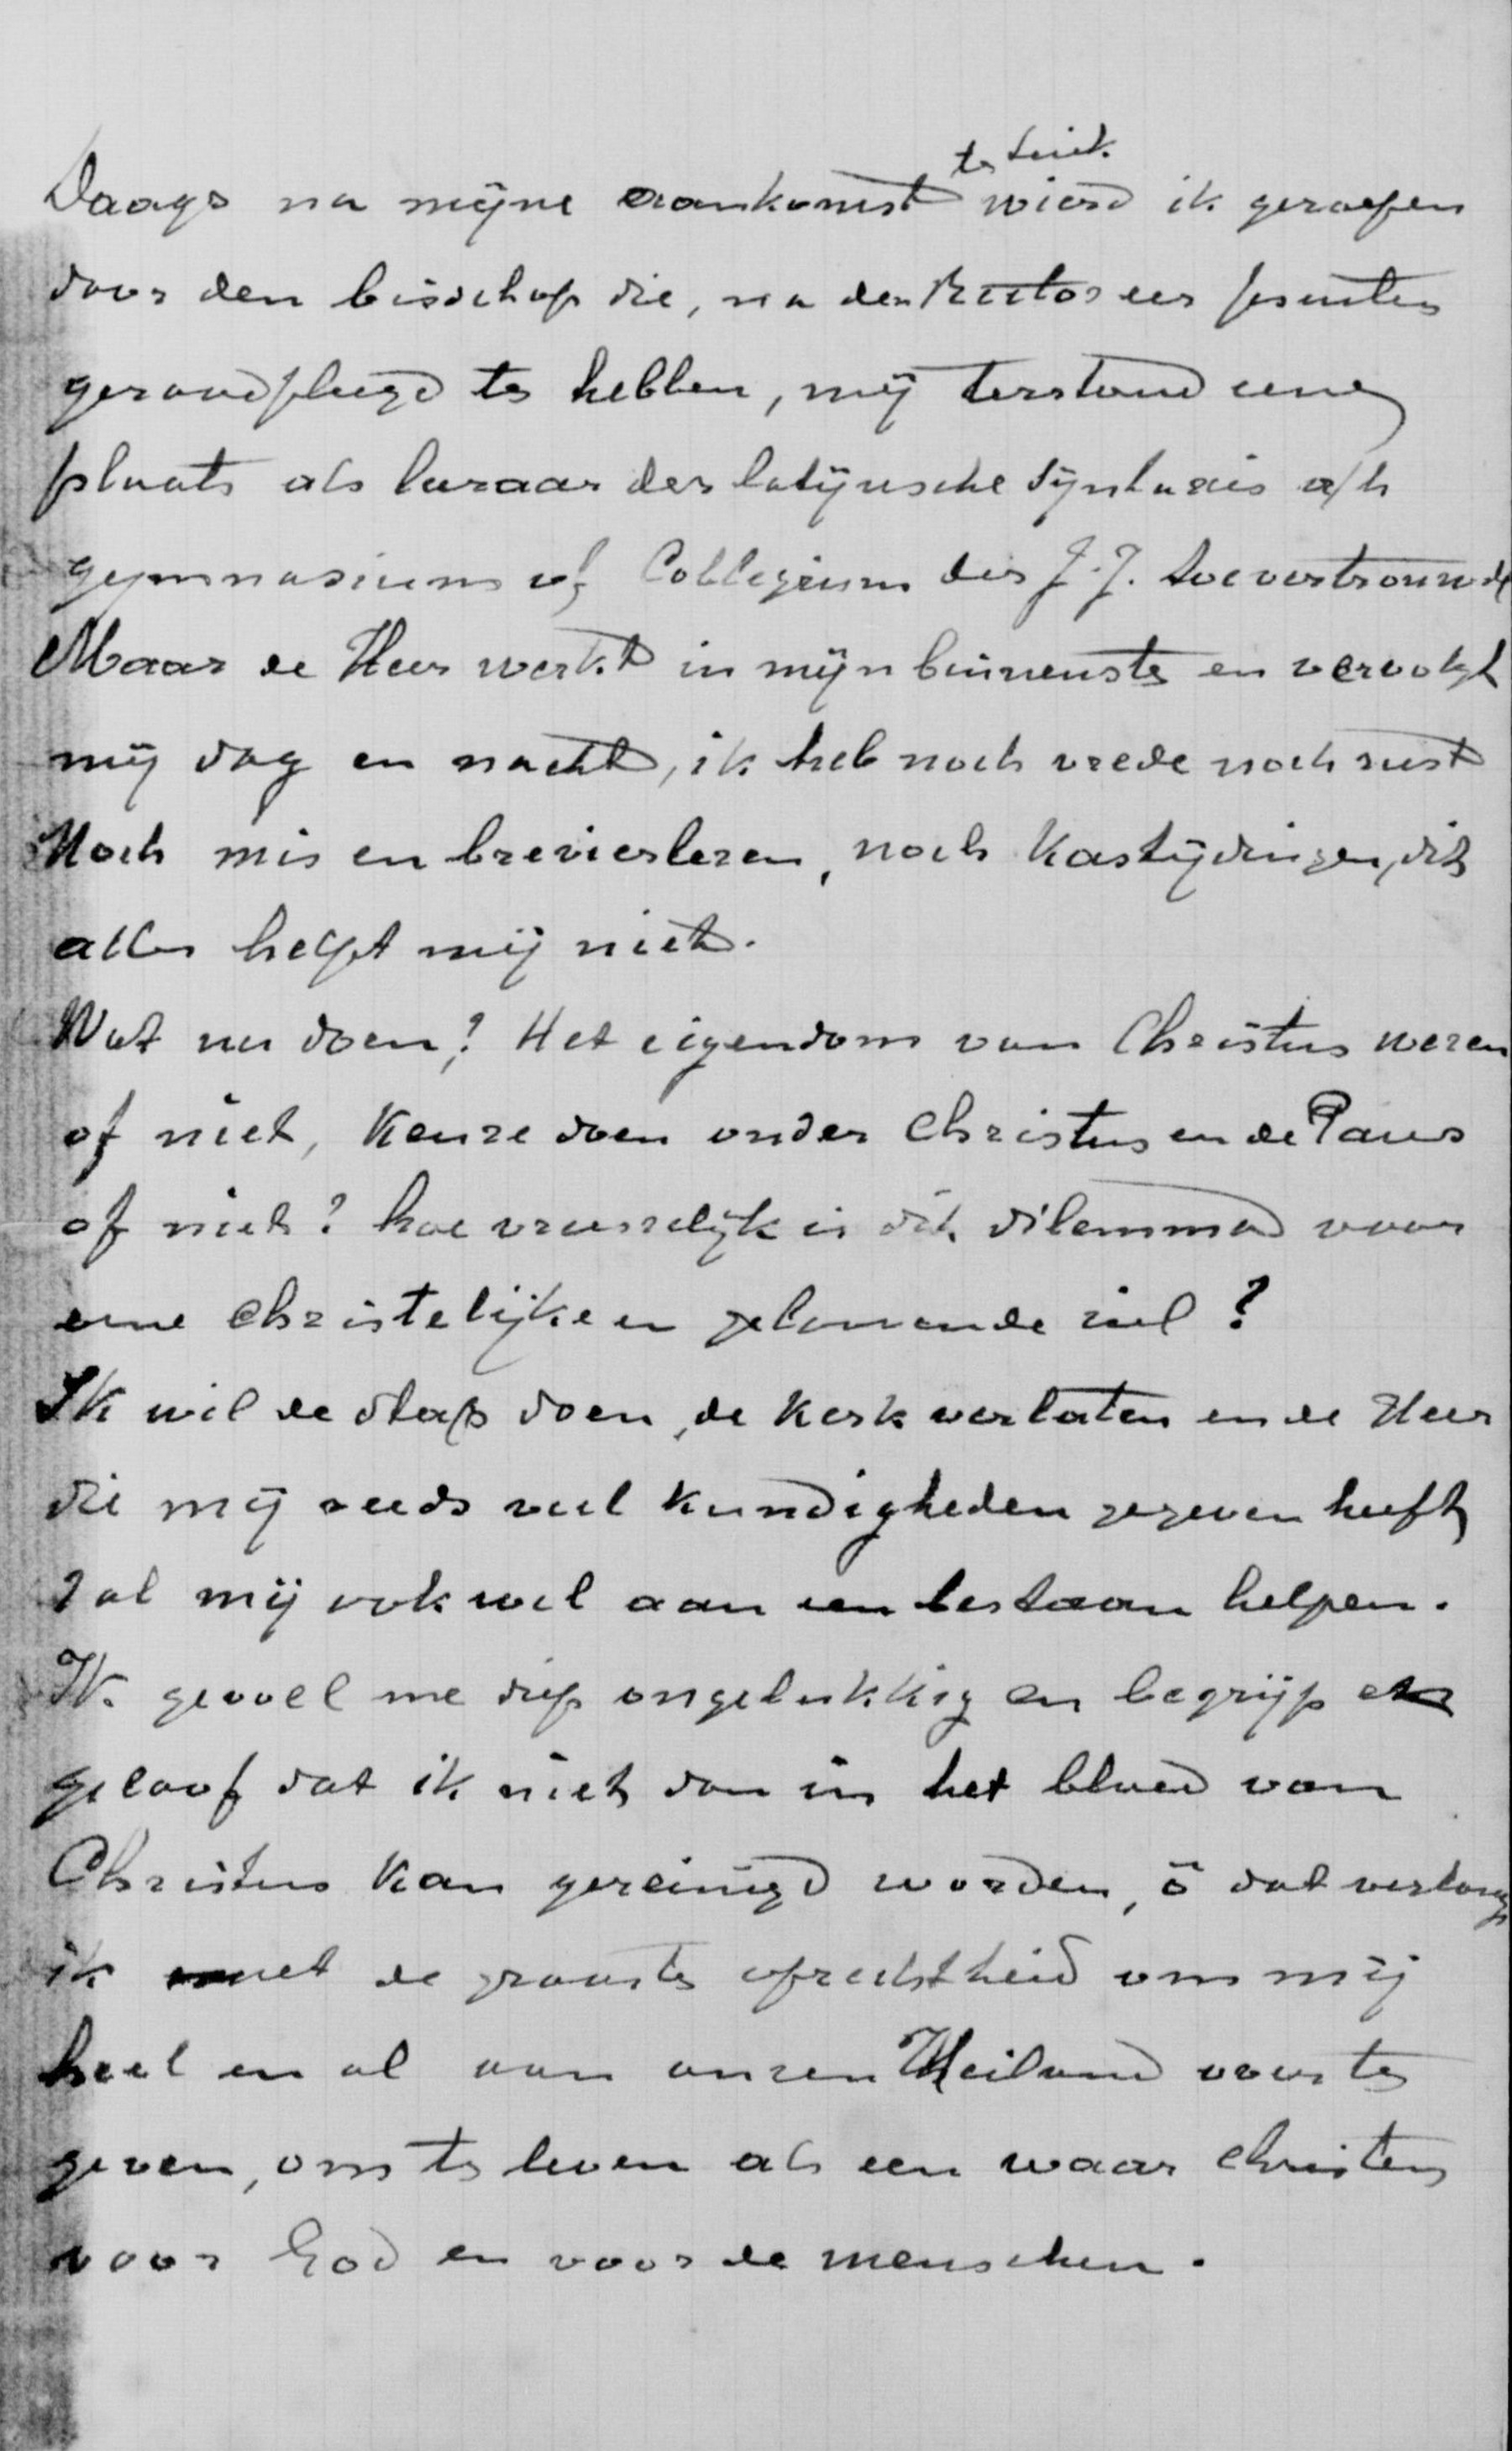 te Luik
Daags na mijne aankomst wierd ik geroepen
door den bisschop die, na den Rector der Jesuiten
geraadpleegd te hebben, mij terstond eene
plaats als leraar der latijnsche Syntaxis a/h
gymnasium of Collegium der J.J. toevertrouwde
Maar de Heer werkt in mijn binnenste en vervolgt
mij dag en nacht, ik heb noch vrede noch rust
Noch mis en brevierlezen, noch Kastijdingen, dit
alles helpt mij niet.
Wat nu doen? Het eigendom van Christus wezen
of niet, Keuze doen onder Christus en de Paus
of niet? hoe vreesselijk is dit dilemma voor
eene Christelijke en geloovende ziel?
Ik wil de stap doen, de Kerk verlaten en de Heer
die mij reeds veel Kundigheden gegeven heeft
zal mij ook wel aan een bestaan helpen.
Ik gevoel me diep ongelukkig en begrijp en
geloof dat ik niet dan in het bloed van
Christus Kan gereinigd worden, ô dat verlang
ik met de grootste oprechtheid om mij
heel en al aan onzen Heiland over te
geven, om te leven als een waar Christen
voor God en voor de menschen.